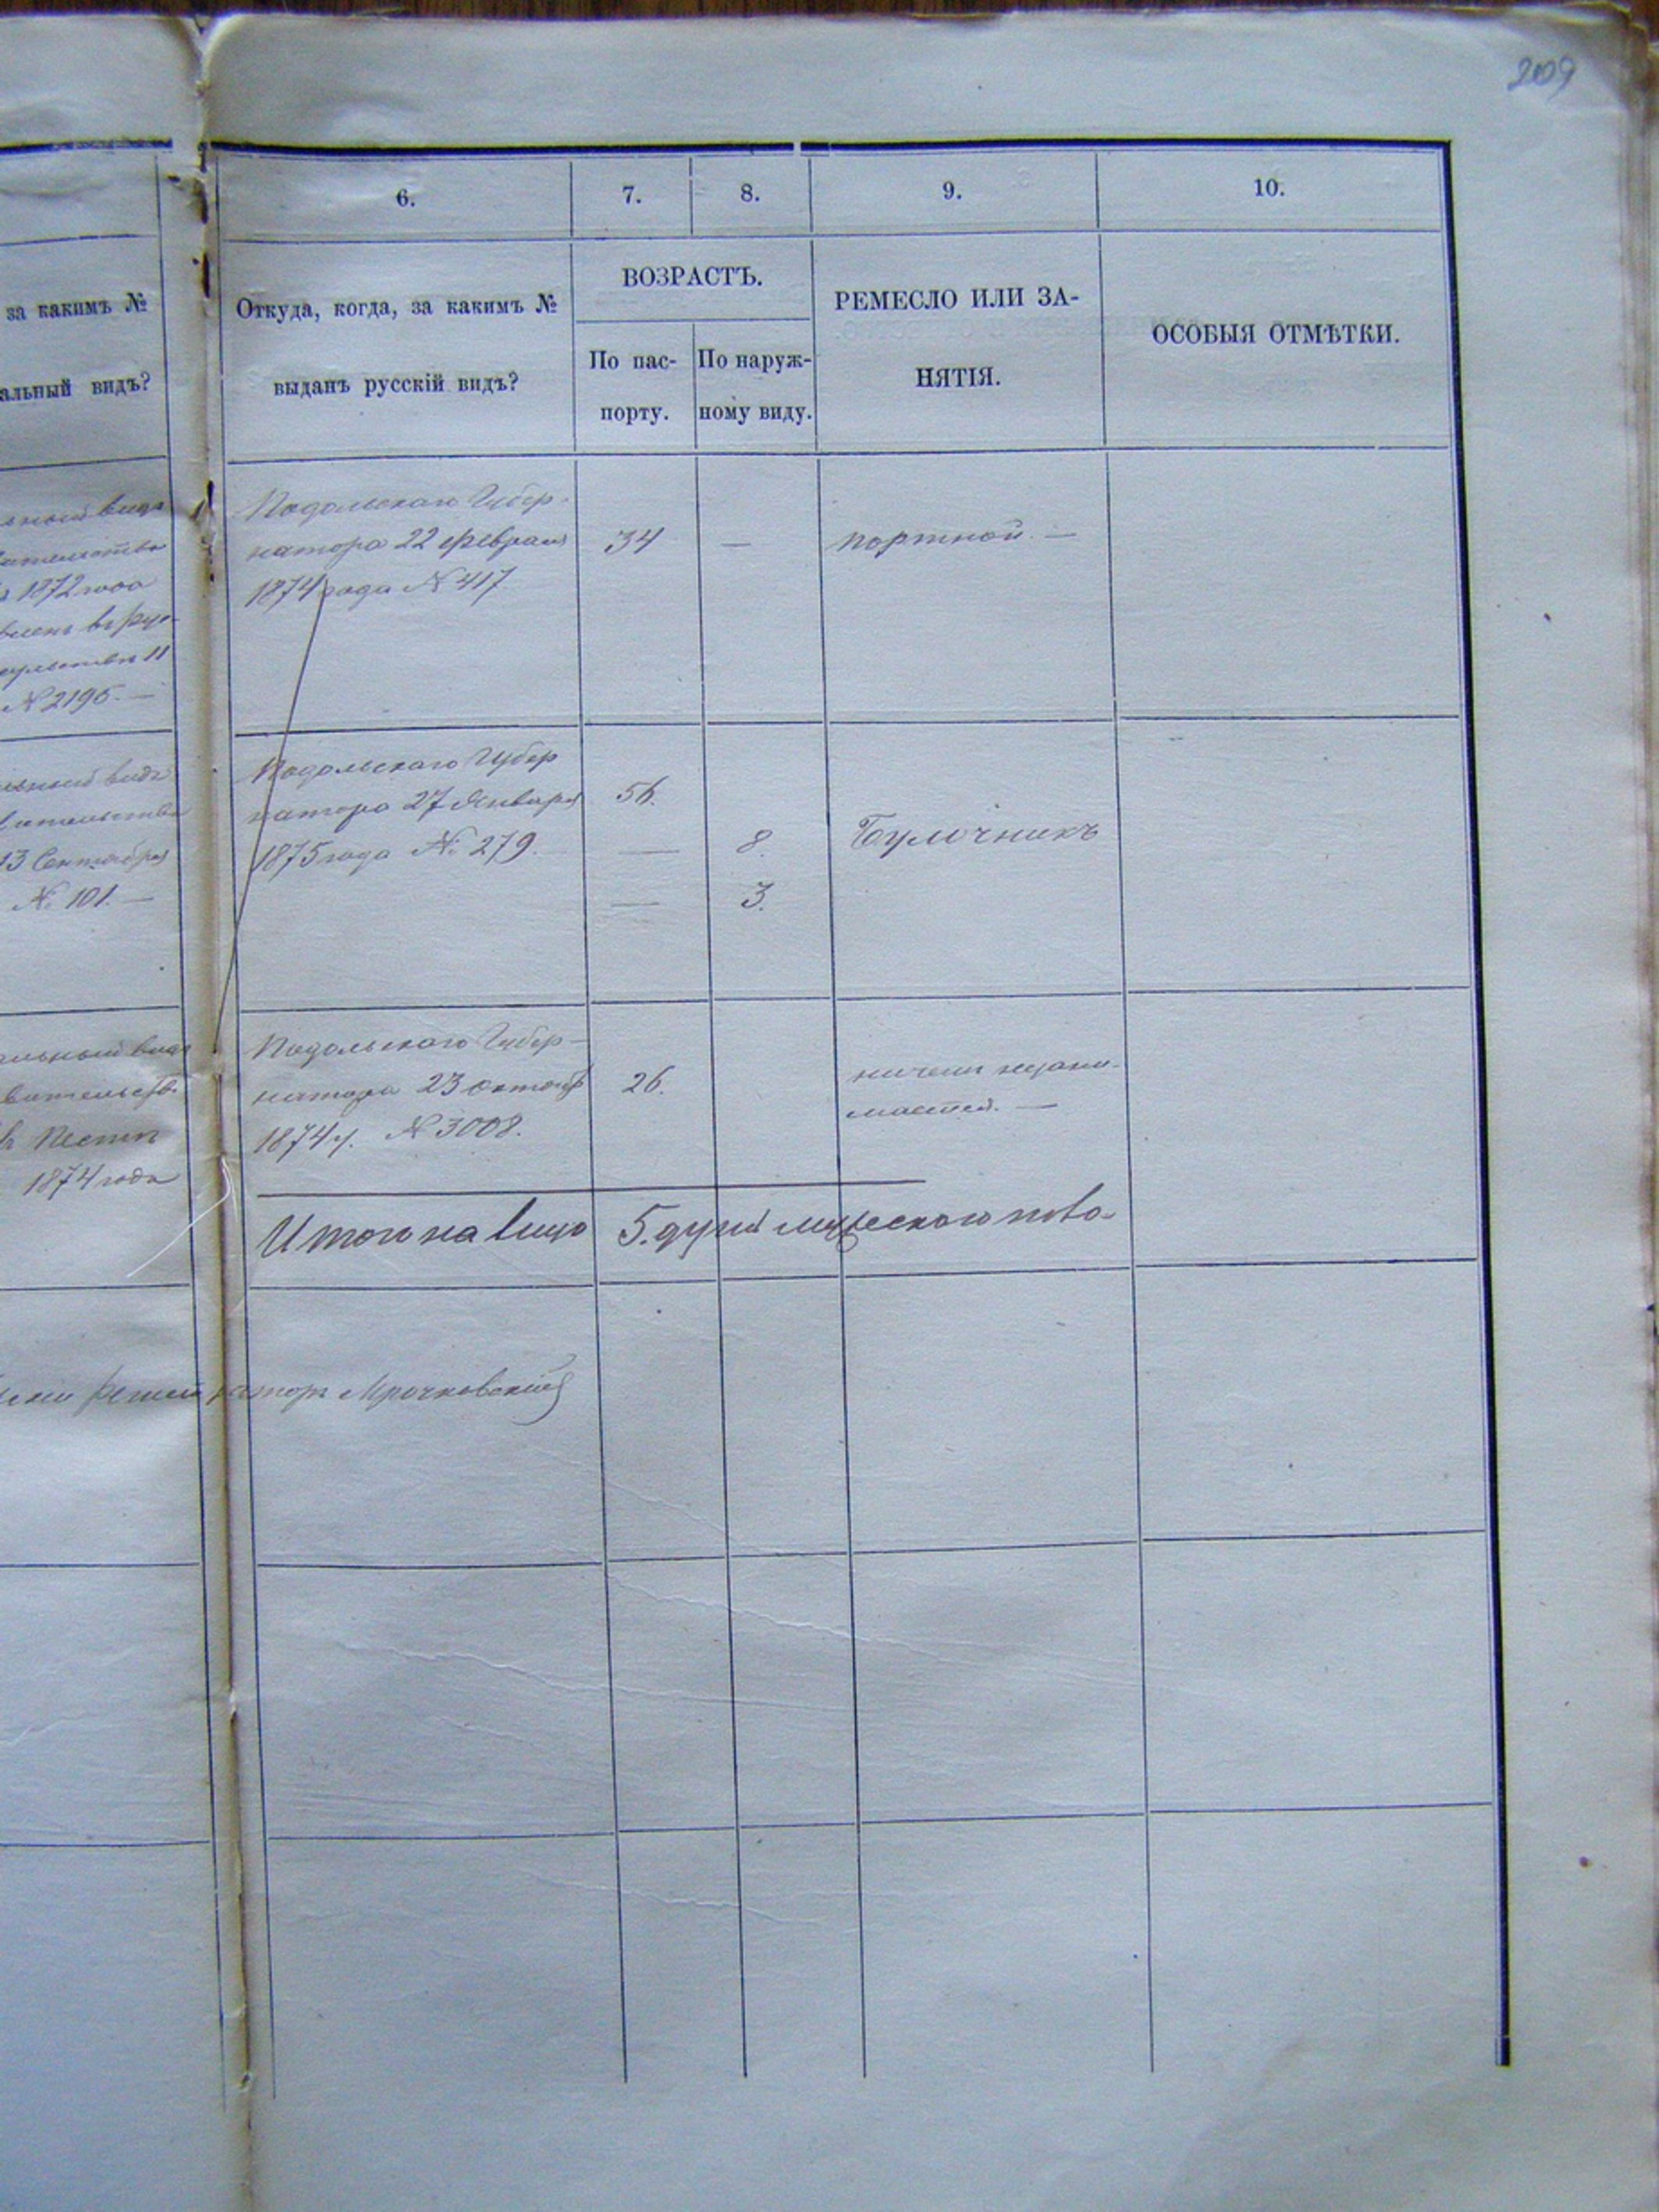 209
6.
7.
8.
9.
10.
за какимъ №
альный видъ?
Откуда, когда, за какимъ №
выданъ русскій видъ?
ВОЗРАСТЪ.
По пас-
порту.
По наруж-
ному виду.
РЕМЕСЛО ИЛИ ЗА-
НЯТІЯ.
ОСОБЫЯ ОТМѢТКИ.
1872 года
11
№ 2195. —
Подольскаго Губер-
натора 22 февраля
1874 года № 417
34
—
портной. —
13 Сентября
№ 101. —
Подольскаго Губер
натора 27 Января
1875 года № 279.
56.
— 8.
— 3.
Булочникъ
1874 года
Подольскаго Губер-
натора 23 октябр
1874 г. № 3008.
26.
ничемъ незани-
мается. —
Итого на лицо 5. душъ мужескаго пола-
Мрочковскій